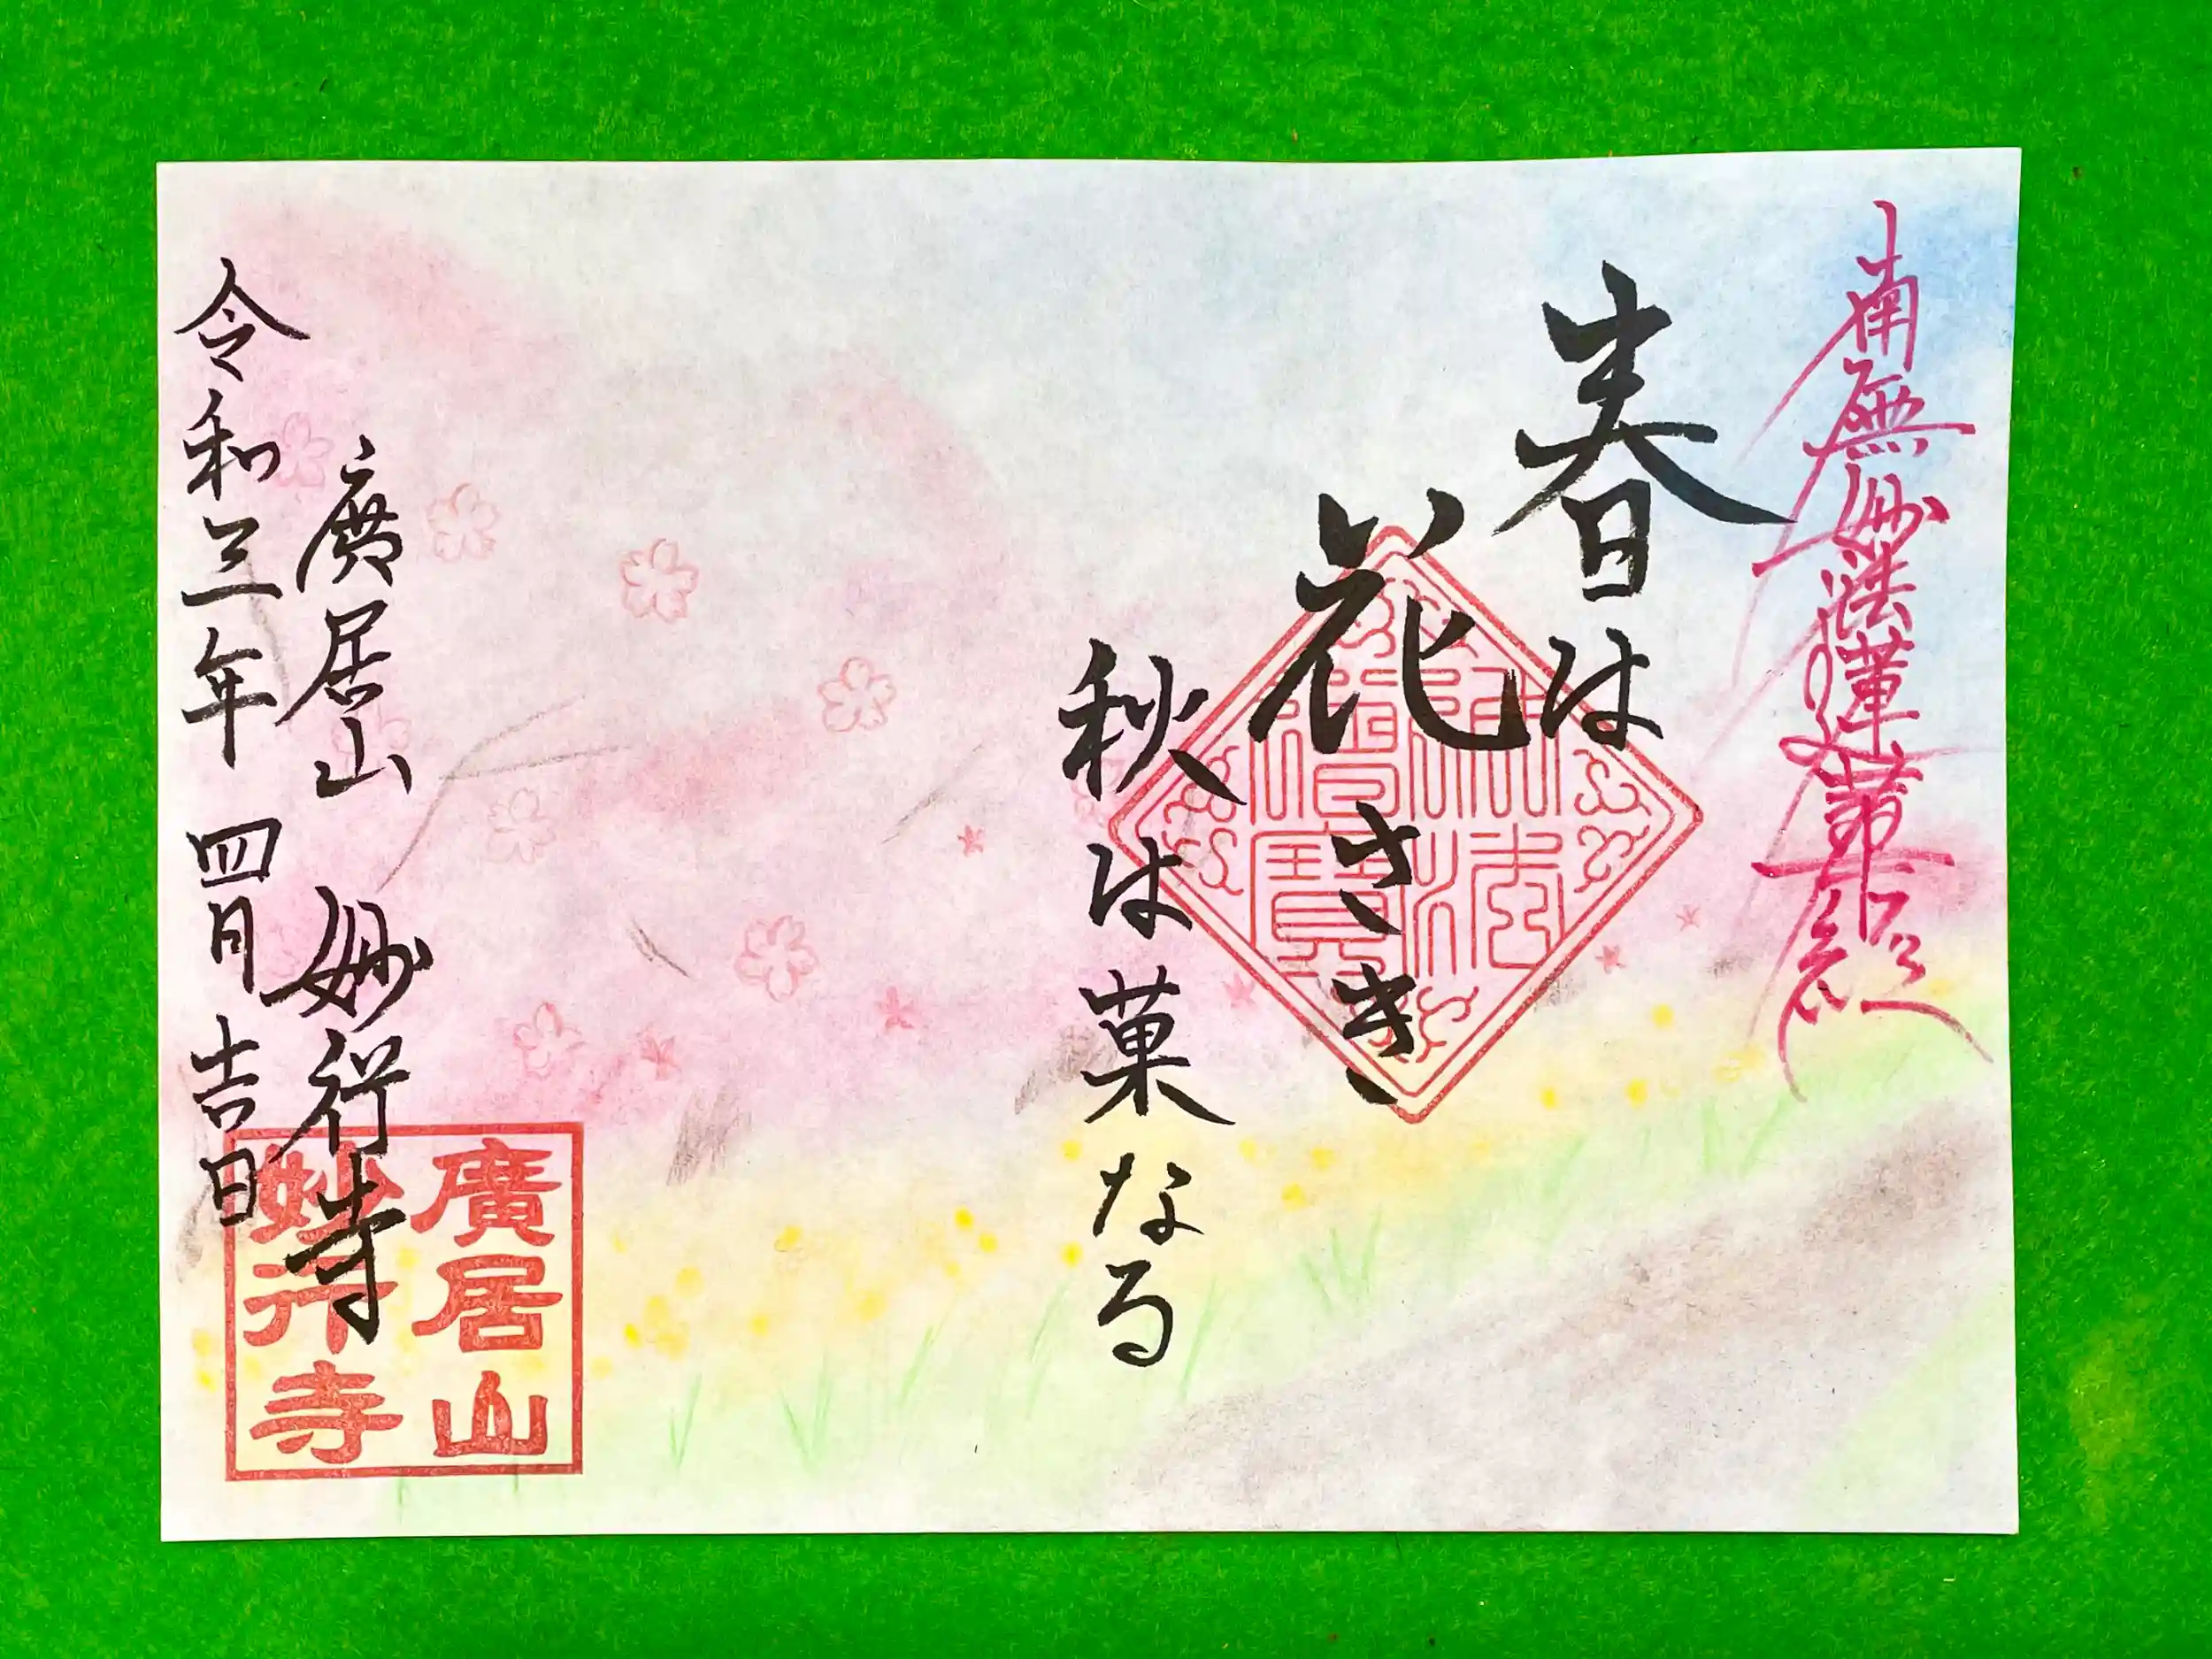 南無妙法蓮華経
春は
花さき、
秋は菓なる
廣居山 妙行寺
令和三年 四月 吉日
佛法
僧寳
廣居山
妙行寺